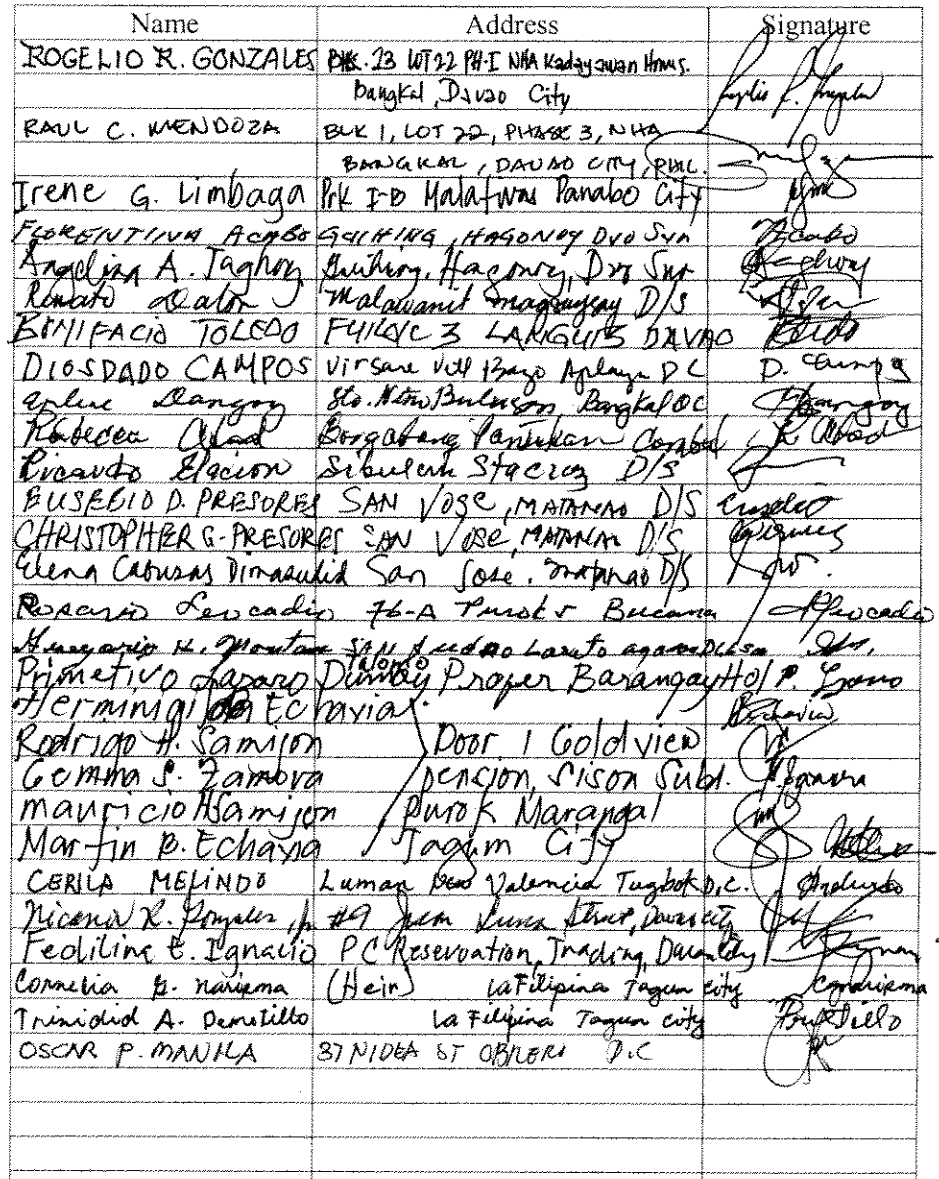 Name Address Signature
ROGELIO R. GONZALES BLK. 23 LOT 22 PH-I NHA Kadayawan Homes.
Bangkal, Davao City
RAUL C. MENDOZA BLK 1, LOT 22, PHASE 3, NHA
BANGKAL, DAVAO CITY, PHIL.
Irene G. Limbaga Prk I-B Malativas Panabo City
FLORENTINA ACABO GUIHING, HAGONOY DVO SUR Acabo
Angelina A. Taghoy Guihing, Hagonoy, Dvo Sur Taghoy
Renato Dalon Malawanit Magsaysay D/S
BONIFACIO TOLEDO DAVAO
DIOSDADO CAMPOS Virsane Vill Bago Aplaya DC D. Campos
Dangoy Sto. Niño Bangkal DC
Rebecca Abad Pantukan R. Abad
Ricardo Elacion Sibulan Sta cruz D/S
EUSEBIO D. PRESORES SAN VOSE, MATANAO D/S
CHRISTOPHER G. PRESORES SAN VOSE, MATANAO D/S
Elena Cabusas Dimasulid San Jose, Matanao D/S
Rosario Leocadio 76-A Purok 5 Bucana
H. SAN
Primetivo Lazaro Talomo Proper Barangay Hol P.
Herminigilda Echavia
Rodrigo A. Samijon Door 1 Goldview
Gemma S. Zamora pension, Sison Subd.
mauricio A Samijon Purok Marangal
Martin B. Echavia Tagum City
CERILA MELINDO Luman New Valencia Tugbok D.C.
Nicanor R. Gonzales, Jr #9 Juan Luna Street, Davao City
Fedilina E. Ignacio PC Reservation, Trading,
Cornelia G. narisma (Heir) La Filipina Tagum city Cgnarisma
Trinidid A. Demetillo La Filipina Tagum city
OSCAR P. MANILA 37 NIDEA ST OBRERO D.C